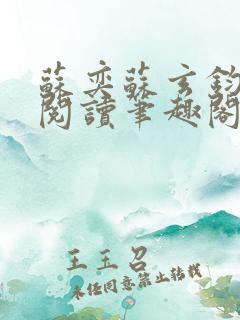 蘇奕蘇玄鈞
閱讀筆趣閣
王玉召
未經同意禁止轉載